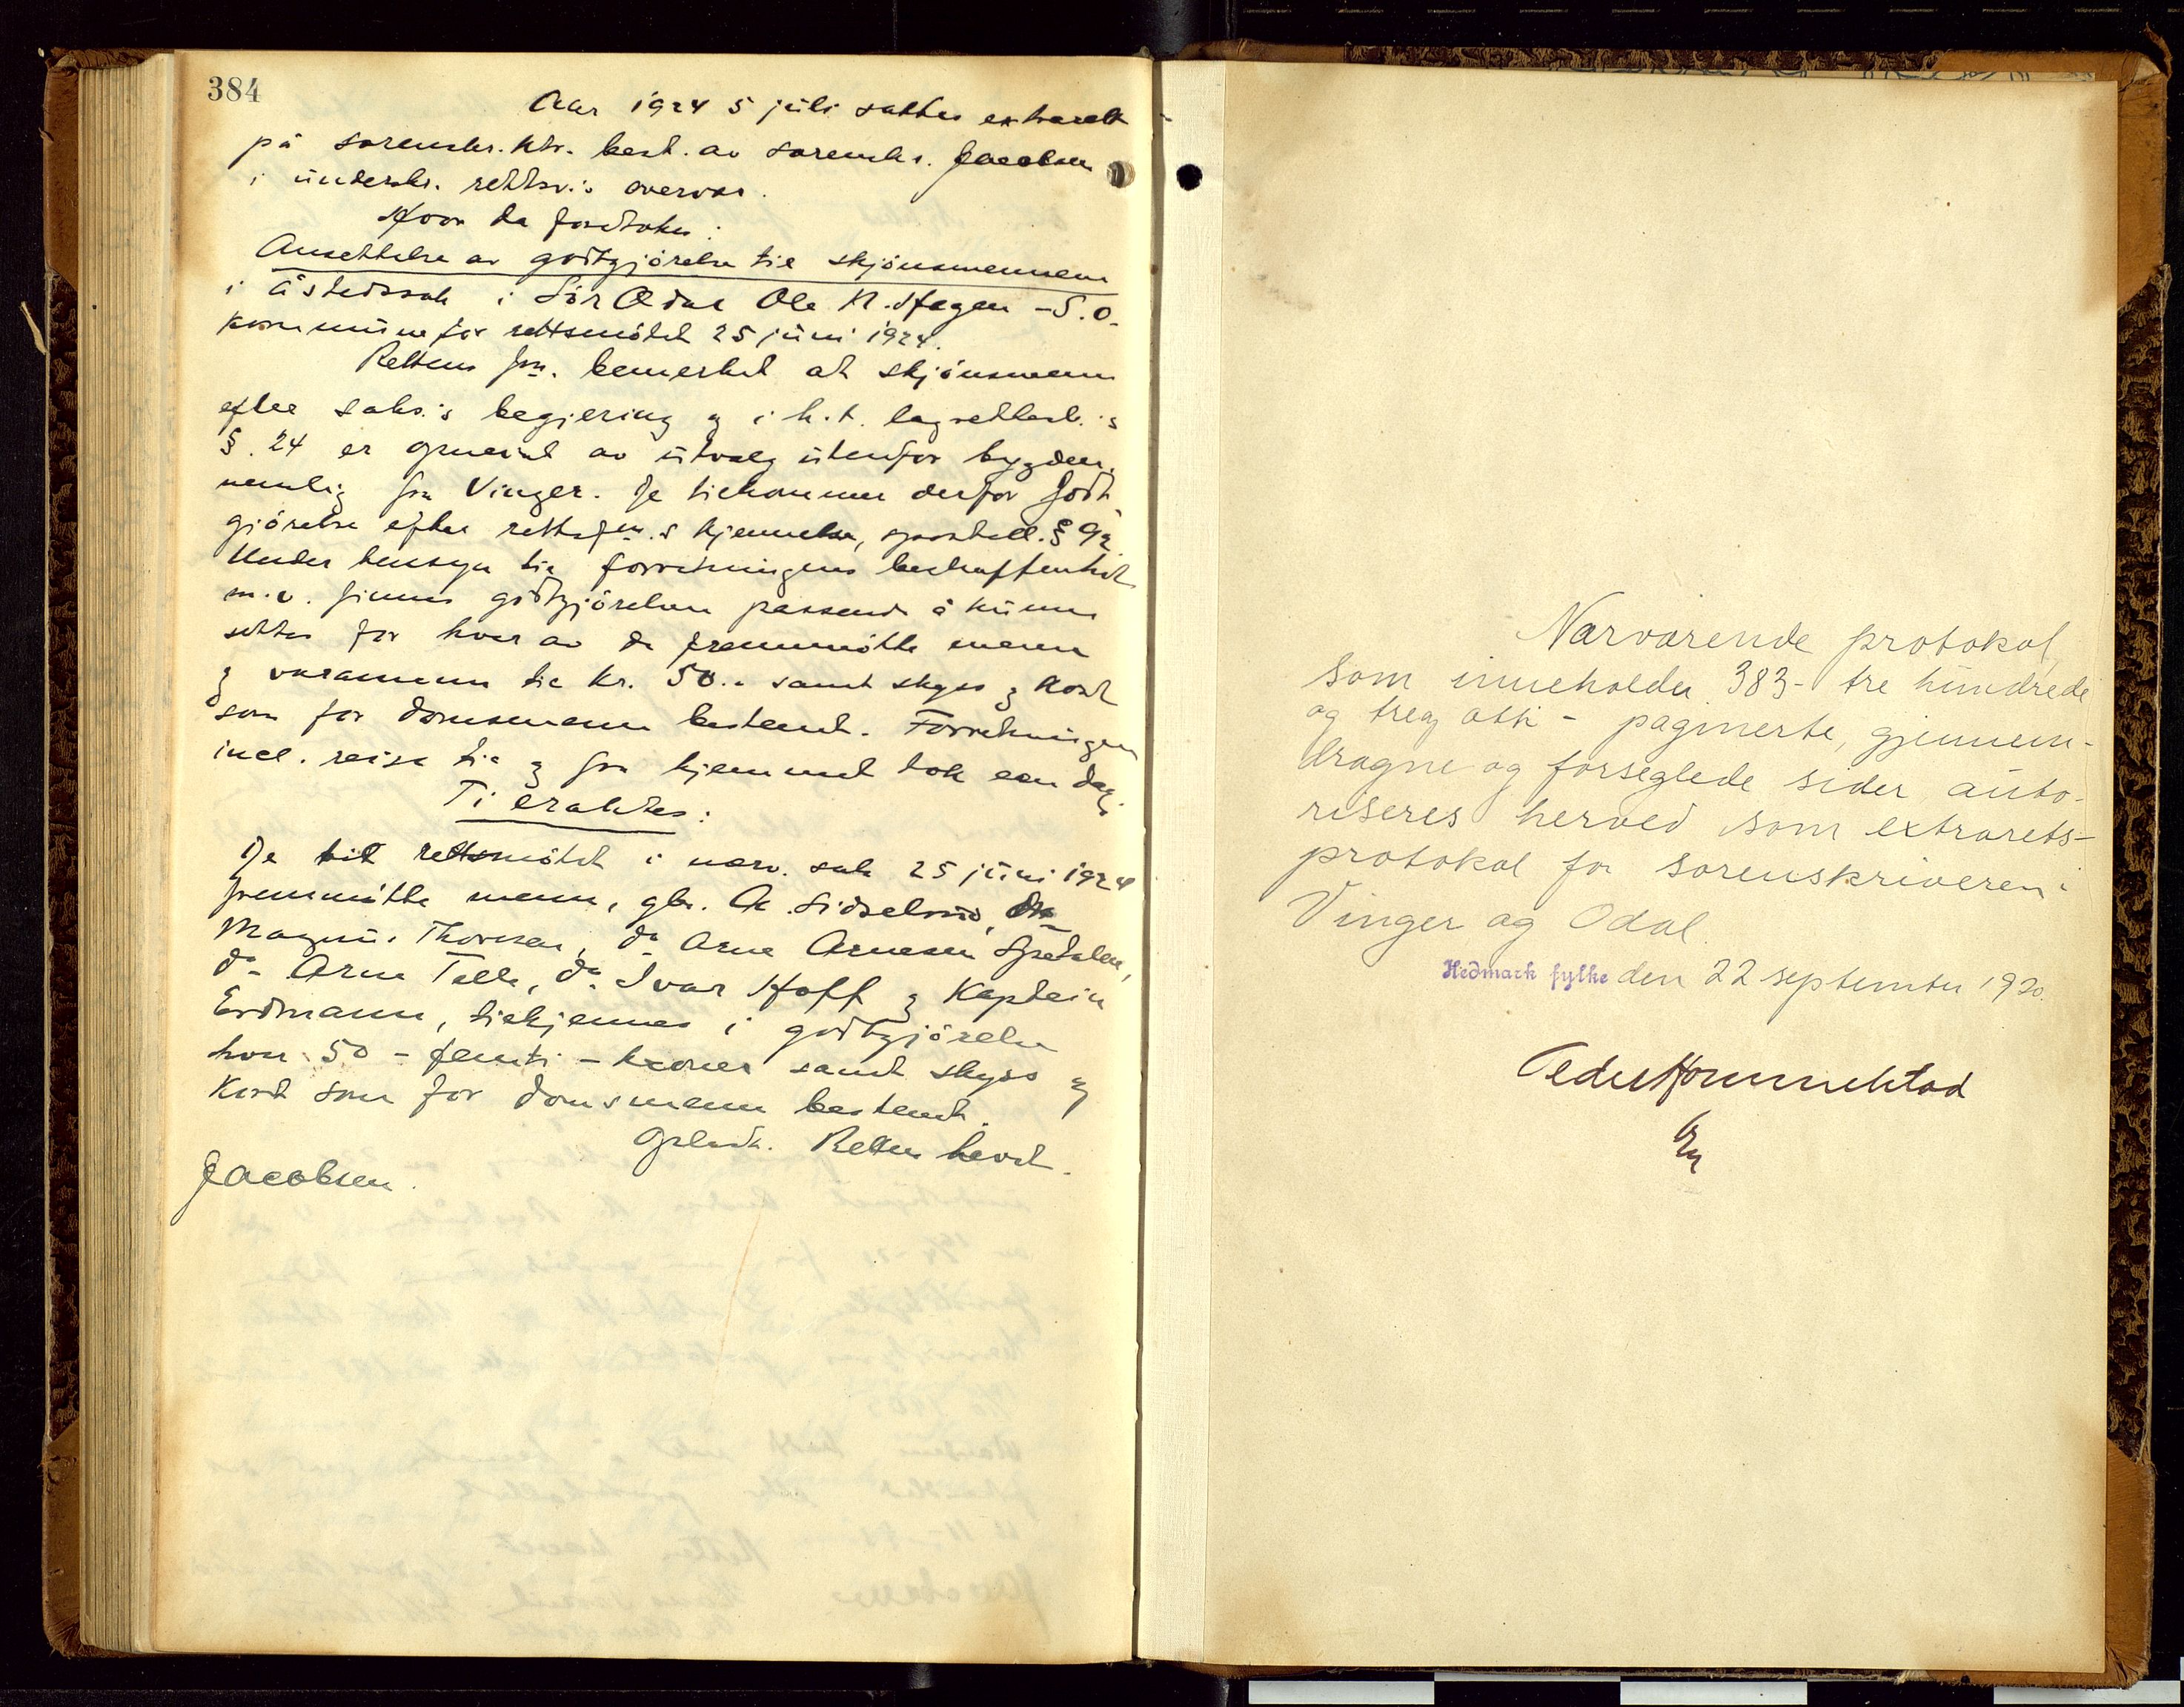 384
Aar 1924 5 juli sattes extrarett
på sorenskr.ktr. best. av sorenskr. Jacobsen
i underskr. rettsv.s overvær.
Hvor da foretokes:
Ansettelse av godtgjörelse til skjönsmennene
i åstedssak i Sör Odal Ole K. Hagen - S.O.
kommune for rettsmötet 25 juni 1924.
Rettens fm. bemerket at skjönsmenn
efter saks.s begjering og i h.t. lagrettesl.s
§. 24 er opnevnt av utvalg utenfor bygden,
nemlig fra Vinger. De tilkommer derfor godt
gjörelse efter rettsfm.s kjennelse, sportell. § 92
Under hensyn til forretningens beskaffenhet
m.v. finnes godtgjörelsen passende å kunne
settes for hver av de fremmötte menn
og varamenn til kr. 50.- samt skyss og kost
som for domsmenn bestemt. Forretningen
incl. reise til og fra hjemmet tok een dag.
Ti eraktes:
De til rettsmötet i nærv. sak 25 juni 1924
fremmötte menn, gbr. A. Sidselrud,
Magnus Thoresen, do Arne Arnesen Spetalen,
do Arne Telle, do Ivar Hoff og Kaptein
Erdmann, tilkjennes i godtgjörelse
hver 50 - femti - kroner samt skyss og
kost som for domsmenn bestemt.
Oplest. Retten hevet.
Jacobsen.
Nærværende protokol,
som inneholder 383 - tre hundrede
og treog otti - paginerte, gjennem-
dragne og forseglede sider auto-
riseres herved som extrarets-
protokol for sorenskriveren i
Vinger og Odal.
Hedmark fylke den 22 september 1920.